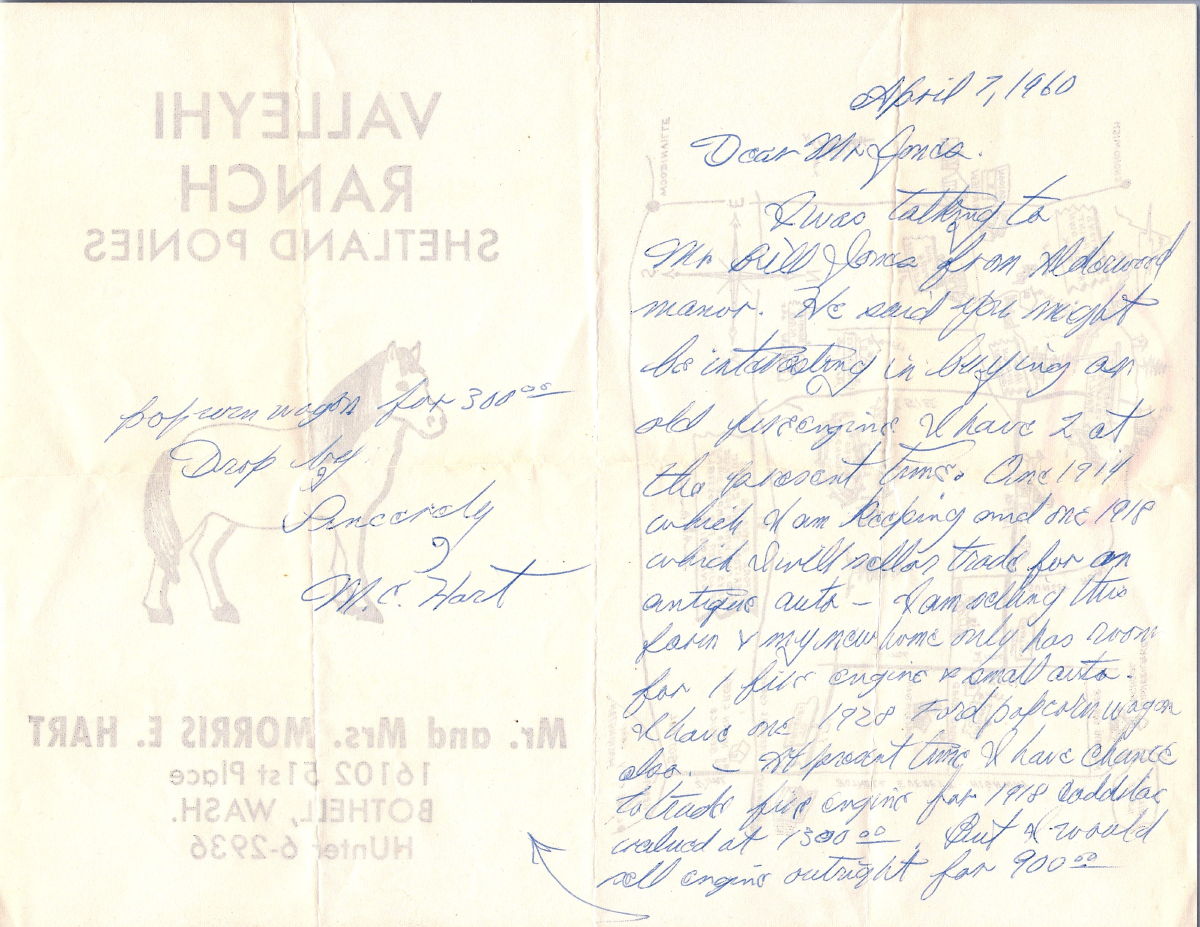 April 7, 1960
Dear Mr Jones.
I was talking to
Mr Bill Jones from Alderwood
manor. He said you might
be interesting in buying an
old fire engine I have 2 at
the present time. One 1914
which I am keeping and one 1918
which I will sell or trade for an
antique auto — I am selling this
farm & my new home only has room
for 1 fire engine & small auto.
I have one 1928 Ford popcorn wagon
also. — At present time I have chance
to trade fire engine for 1918 Caddilac
valued at 1300 00. But I would
sell engine outright for 900 00
popcorn wagon for 300 00
Drop by
Sincerely
M.E. Hart
VALLEYHI
RANCH
SHETLAND PONIES
Mr. and Mrs. MORRIS E. HART
16102 51st Place
BOTHELL, WASH.
HUnter 6-2936
WOODINVILLE